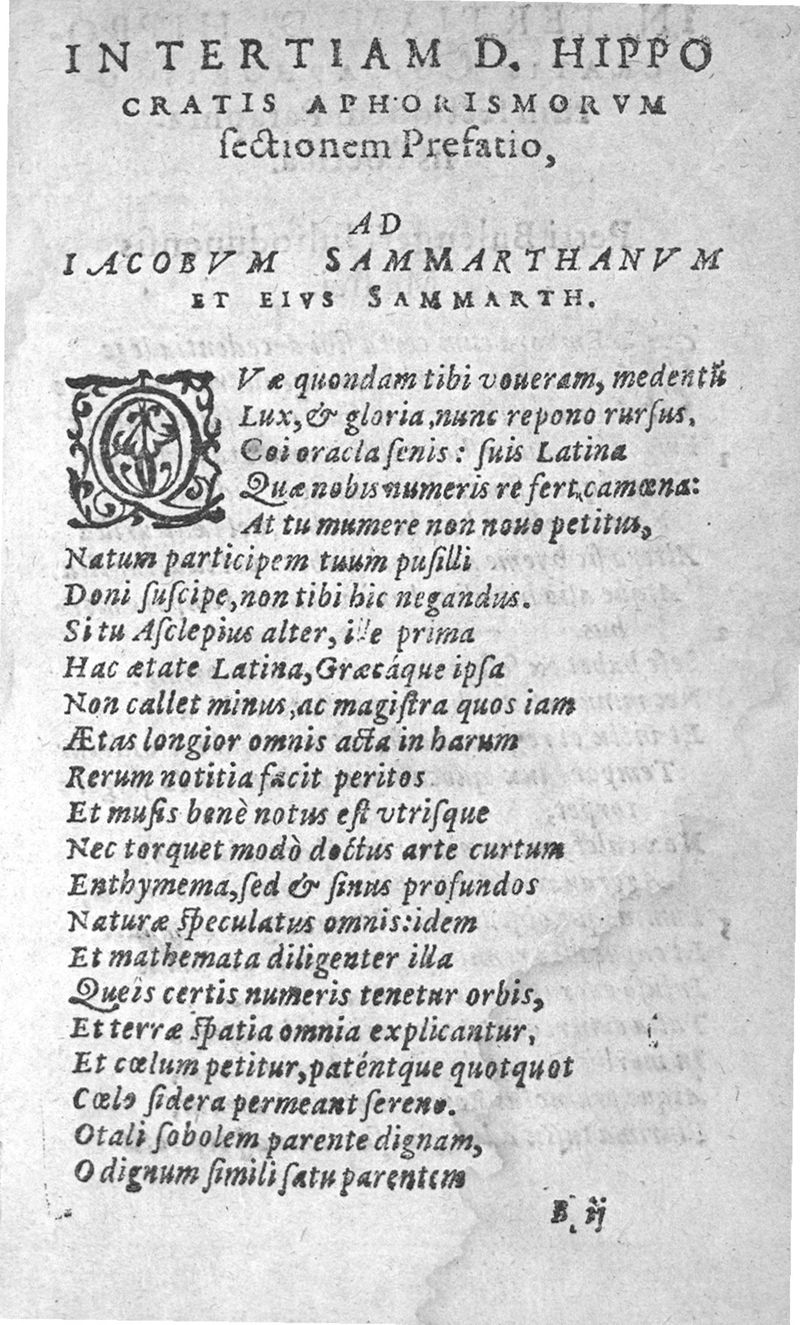 IN TERTIAM D. HIPPO
CRATIS APHORISMORVM
sectionem Prefatio,
AD
IACOBVM SAMMARTHANVM
ET EIVS SAMMARTH.
QVæ quondam tibi voueram, medentũ
Lux, & gloria, nunc repono rursus,
Coi oracla senis: suis Latina
Quæ nobis numeris refert camœna:
At tu mumere non nouo petitus,
Natum participem tuum pusilli
Doni suscipe, non tibi hic negandus.
Si tu Asclepius alter, ille prima
Hac ætate Latina, Græcáque ipsa
Non callet minus, ac magistra quos iam
Ætas longior omnis acta in harum
Rerum notitia facit peritos
Et musis benè notus est vtrisque
Nec torquet modò doctus arte curtum
Enthymema, sed & sinus profundos
Naturæ speculatus omnis: idem
Et mathemata diligenter illa
Queis certis numeris tenetur orbis,
Et terræ spatia omnia explicantur,
Et cœlum petitur, paténtque quotquot
Cœlo sidera permeant sereno.
O tali sobolem parente dignam,
O dignum simili satu parentem
B ij